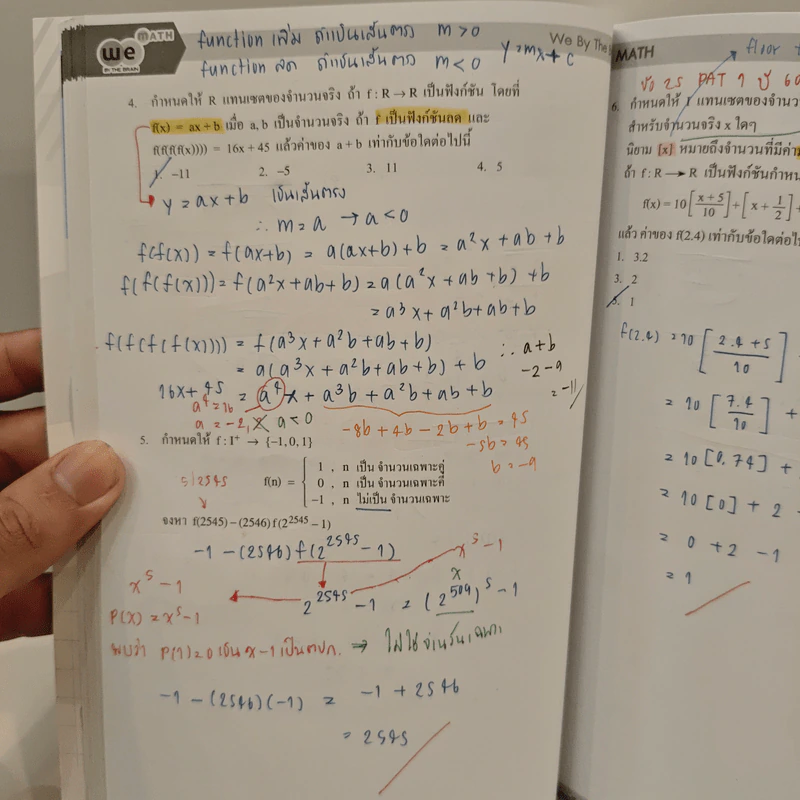 we MATH
BY THE BRAIN
function เพิ่ม ถ้าเป็นเส้นตรง m > 0
function ลด ถ้าเป็นเส้นตรง m < 0 y = mx + c
We By The
4. กำหนดให้ R แทนเซตของจำนวนจริง ถ้า f : R → R เป็นฟังก์ชัน โดยที่
f(x) = ax + b เมื่อ a, b เป็นจำนวนจริง ถ้า f เป็นฟังก์ชันลด และ
f(f(f(f(x)))) = 16x + 45 แล้วค่าของ a + b เท่ากับข้อใดต่อไปนี้
1. −11 2. −5 3. 11 4. 5
y = ax + b เป็นเส้นตรง
∴ m = a → a < 0
f(f(x)) = f(ax+b) = a(ax+b) + b = a²x + ab + b
f(f(f(x))) = f(a²x + ab + b) = a(a²x + ab + b) + b
= a³x + a²b + ab + b
f(f(f(f(x)))) = f(a³x + a²b + ab + b)
= a(a³x + a²b + ab + b) + b
16x + 45 = a⁴x + a³b + a²b + ab + b
∴ a + b
-2 -9
= -11
a⁴ = 16
a = -2, 2 a < 0
-8b + 4b - 2b + b = 45
-5b = 45
b = -9
5. กำหนดให้ f : I⁺ → {−1, 0, 1}
5|2545
f(n) =
1 , n เป็น จำนวนเฉพาะคู่
0 , n เป็น จำนวนเฉพาะคี่
−1 , n ไม่เป็น จำนวนเฉพาะ
จงหา f(2545) − (2546) f(2²⁵⁴⁵ − 1)
-1 - (2546) f(2²⁵⁴⁵ - 1)
x⁵ - 1
x⁵ - 1
2²⁵⁴⁵ - 1 = (2⁵⁰⁹)⁵ - 1
x
P(x) = x⁵ - 1
พบว่า P(1) = 0 เช่น x - 1 เป็นตปก. ⇒ ไม่ใช่จำนวนเฉพาะ
-1 - (2546)(-1) = -1 + 2546
= 2545
MATH
floor
ข้อ 25 PAT 1 ปี 60
6.
สำหรับจำนวนจริง x ใดๆ
นิยาม [x] หมายถึงจำนวนที่มีค่า
ถ้า f : R → R เป็นฟังก์ชันกำหน
f(x) = 10[(x + 5)/10] + [x + 1/2] +
แล้ว ค่าของ f(2.4) เท่ากับข้อใดต่อไป
1. 3.2
3. 2
5. 1
f(2.4) = 10[(2.4 + 5)/10]
= 10[7.4/10] +
= 10[0.74] +
= 10[0] + 2
= 0 + 2 - 1
= 1